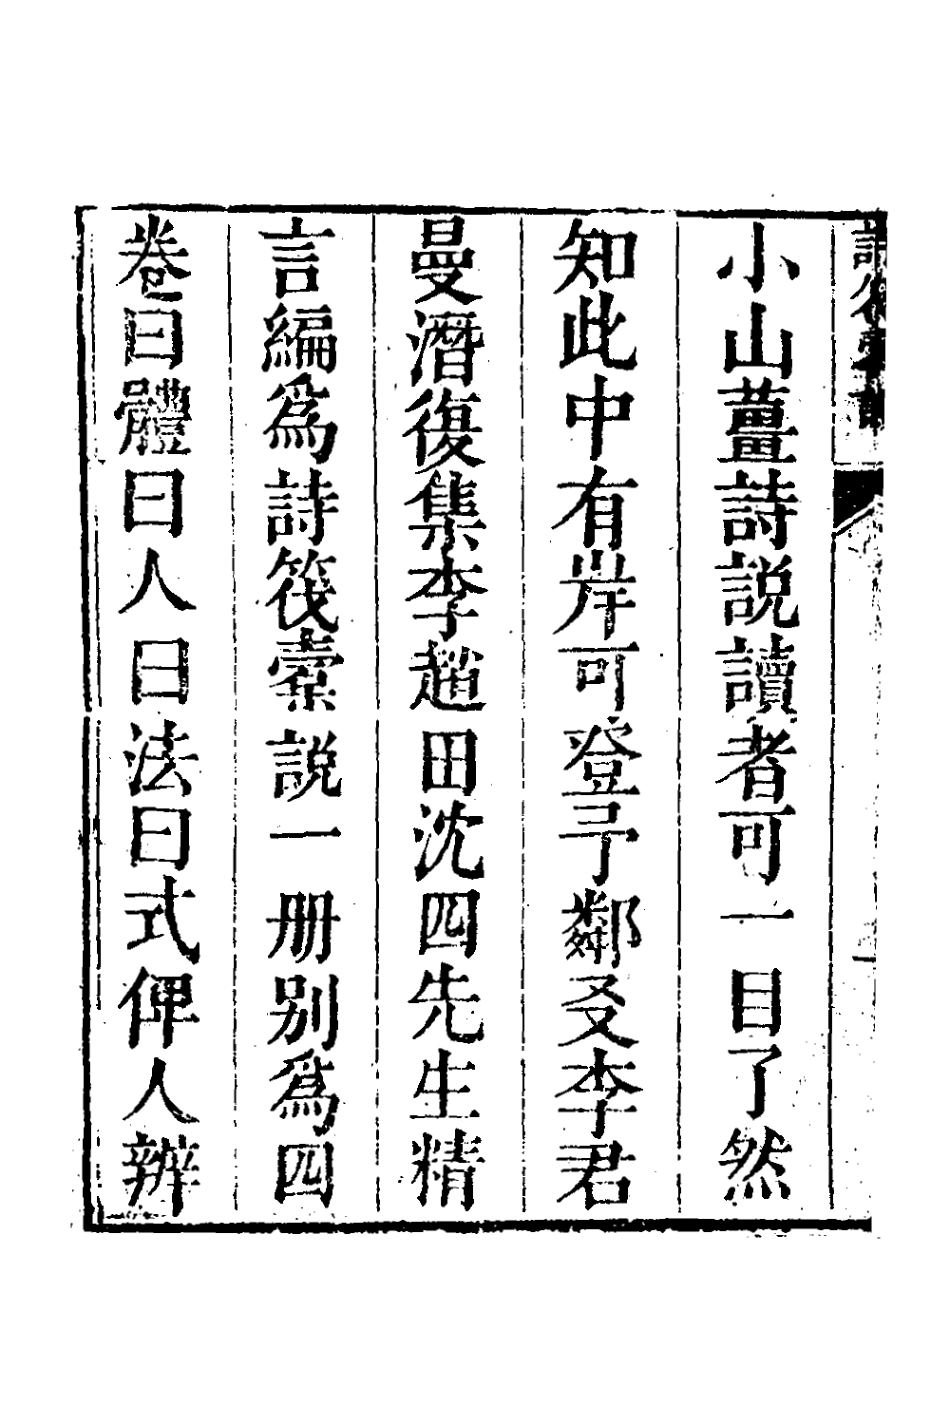 小山薑詩説讀者可一目了然
知此中有岸可登予鄰友李君
曼潛復集李趙田沈四先生精
言編爲詩筏槖説一册别爲四
卷曰體曰人曰法曰式俾人辨